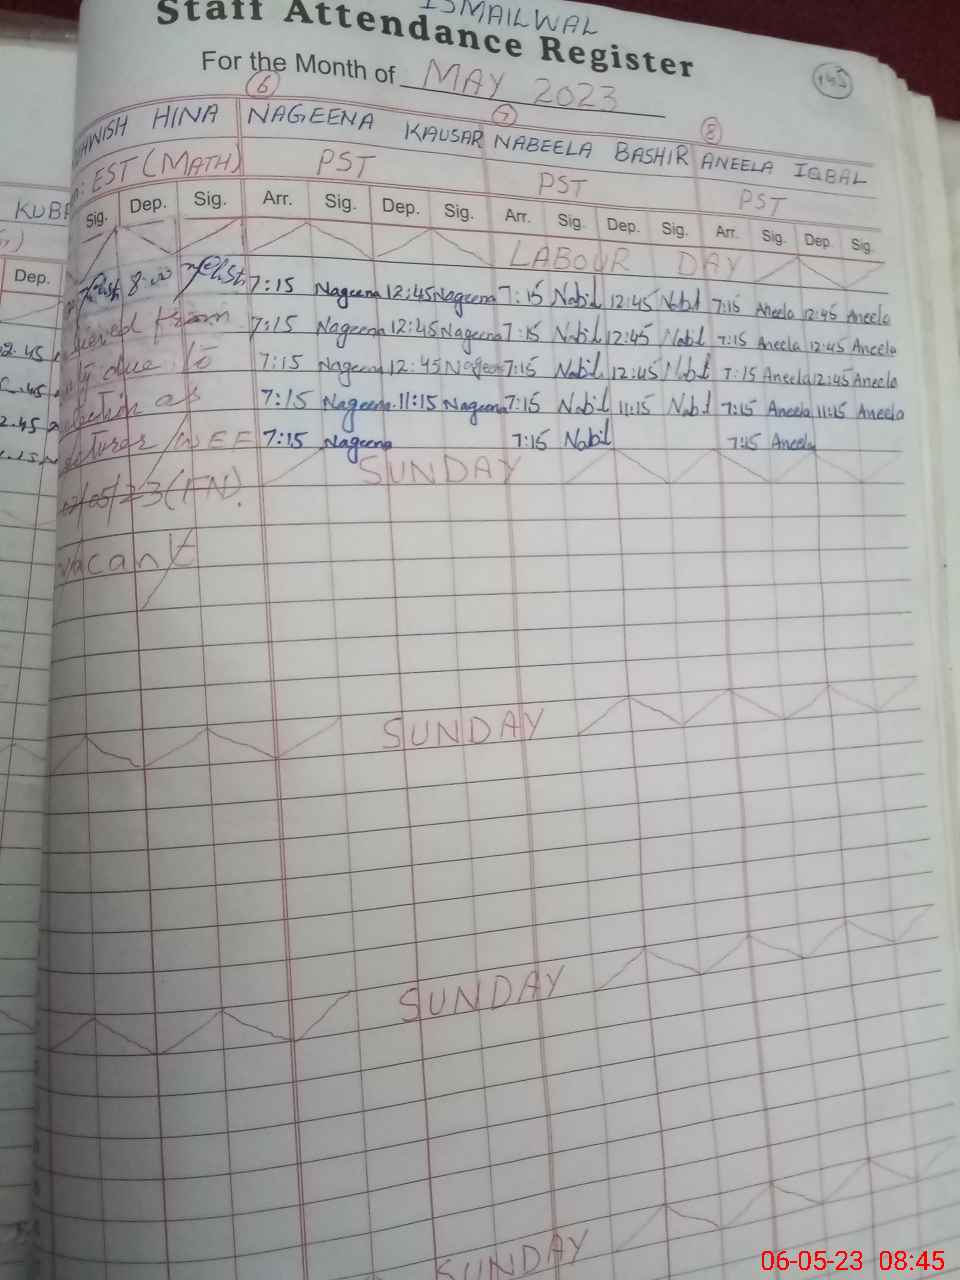 ISMAILWAL
Staff Attendance Register
For the Month of MAY 2023
6 7 8
HINA NAGEENA KAUSAR NABEELA BASHIR ANEELA IQBAL
EST (MATH) PST PST PST
Sig. Dep. Sig. Arr. Sig. Dep. Sig. Arr. Sig. Dep. Sig. Arr. Sig. Dep. Sig.
Dep.
LABOUR DAY
8:00 7:15 Nageena 12:45 Nageena 7:15 Nabil 12:45 Nabil 7:15 Aneela 12:45 Aneela
from 7:15 Nageena 12:45 Nageena 7:15 Nabil 12:45 Nabil 7:15 Aneela 12:45 Aneela
due to 7:15 Nageena 12:45 Nageena 7:15 Nabil 12:45 Nabil 7:15 Aneela 12:45 Aneela
as 7:15 Nageena 11:15 Nageena 7:15 Nabil 11:15 Nabil 7:15 Aneela 11:15 Aneela
7:15 Nageena 7:15 Nabil 7:15 Aneela
SUNDAY
05/23 (FN).
vacant
SUNDAY
SUNDAY
SUNDAY
06-05-23 08:45